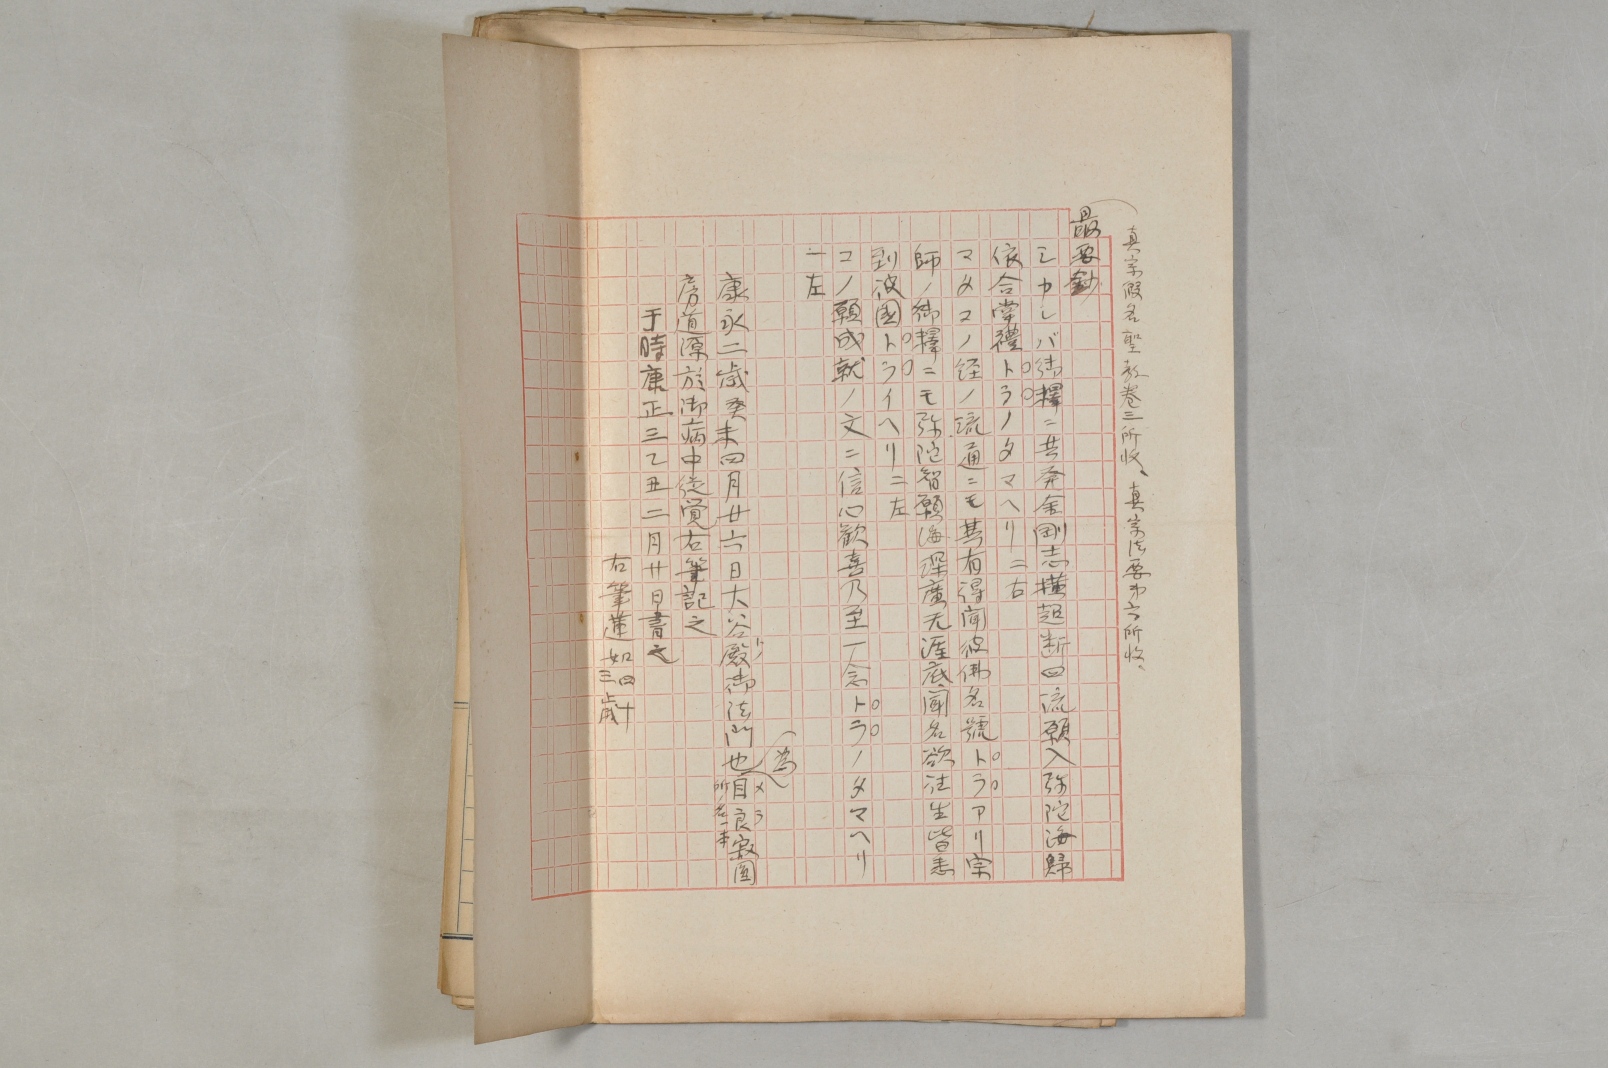 真宗假名聖教卷三所收、真宗法要第六所收、
最要鈔
シカレバ御釋ニ共発金剛志横超断四流願入弥陀海歸
依合掌禮トラノタマヘリ二右
マタコノ経ノ流通ニモ其有得聞彼佛名號トラアリ宗
師ノ御釋ニモ弥陀智願海深廣无涯底聞名欲往生皆悉
到彼國トライヘリ二左
コノ願成就ノ文ニ信心歓喜乃至一念トラノタマヘリ
一左
康永二歳癸未四月廿六日大谷殿御法門也(為)目良寂圓
トノ
メラ
所在一本
房道源於御病中従覚右筆記之
于時康正三乙丑二月廿日書之
右筆蓮如四十三歳